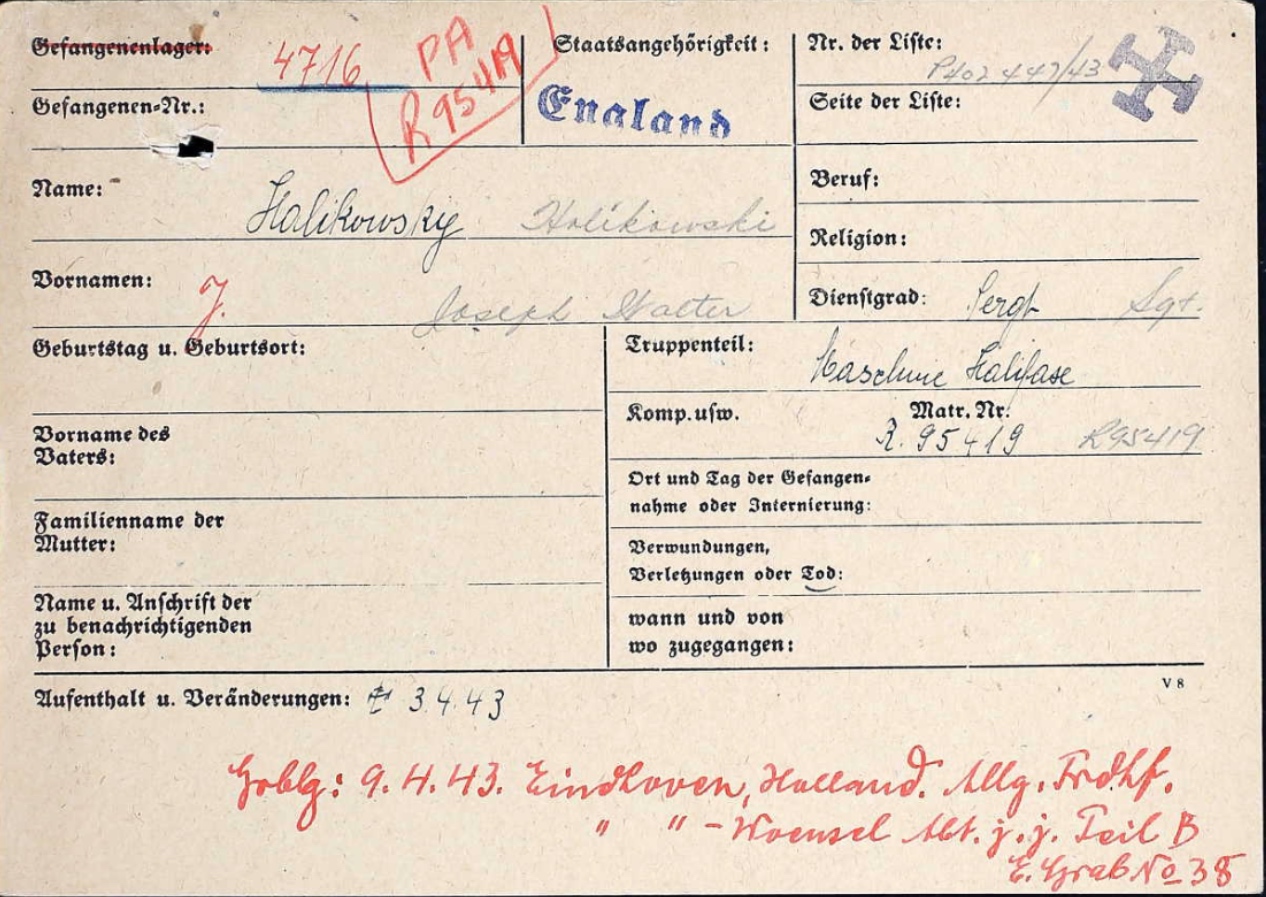 Gefangenenlager:
4716
PA
R95419
Gefangenen-Nr.:
Staatsangehörigkeit:
England
Nr. der Liste:
447/43
Seite der Liste:
Name: Halikowsky Holikowski
Beruf:
Religion:
Vornamen: J. Joseph Walter
Dienstgrad: Sergt Sgt.
Geburtstag u. Geburtsort:
Truppenteil: Maschine Halifax
Komp. usw. Matr. Nr.
R. 95419 R95419
Vorname des
Vaters:
Ort und Tag der Gefangen-
nahme oder Internierung:
Familienname der
Mutter:
Verwundungen,
Verletzungen oder Tod:
Name u. Anschrift der
zu benachrichtigenden
Person:
wann und von
wo zugegangen:
V 8
Aufenthalt u. Veränderungen: 3.4.43
Grblg: 9.4.43. Eindhoven, Holland. Allg. Frdhf.
" " - Woensel Abt. j. j. Teil B
E. Grab No 38